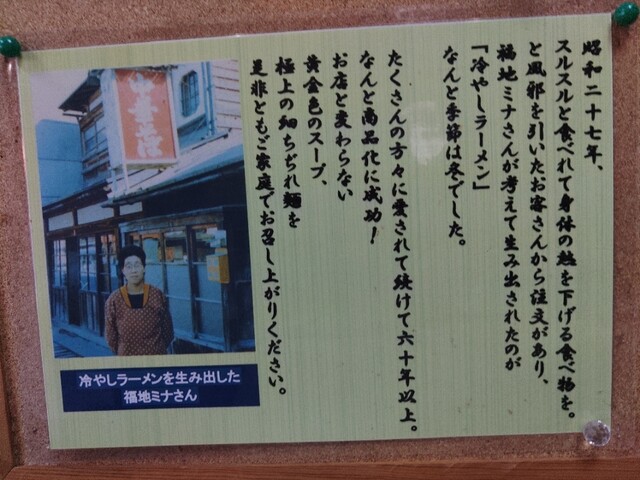 昭和二十七年、
スルスルと食べれて身体の熱を下げる食べ物を。
と風邪を引いたお客さんから注文があり、
福地ミナさんが考えて生み出されたのが
「冷やしラーメン」
なんと季節は冬でした。
たくさんの方々に愛されて続けて六十年以上。
なんと商品化に成功！
お店と変わらない
黄金色のスープ、
極上の細ちぢれ麺を
是非ともご家庭でお召し上がりください。
冷やしラーメンを生み出した
福地ミナさん